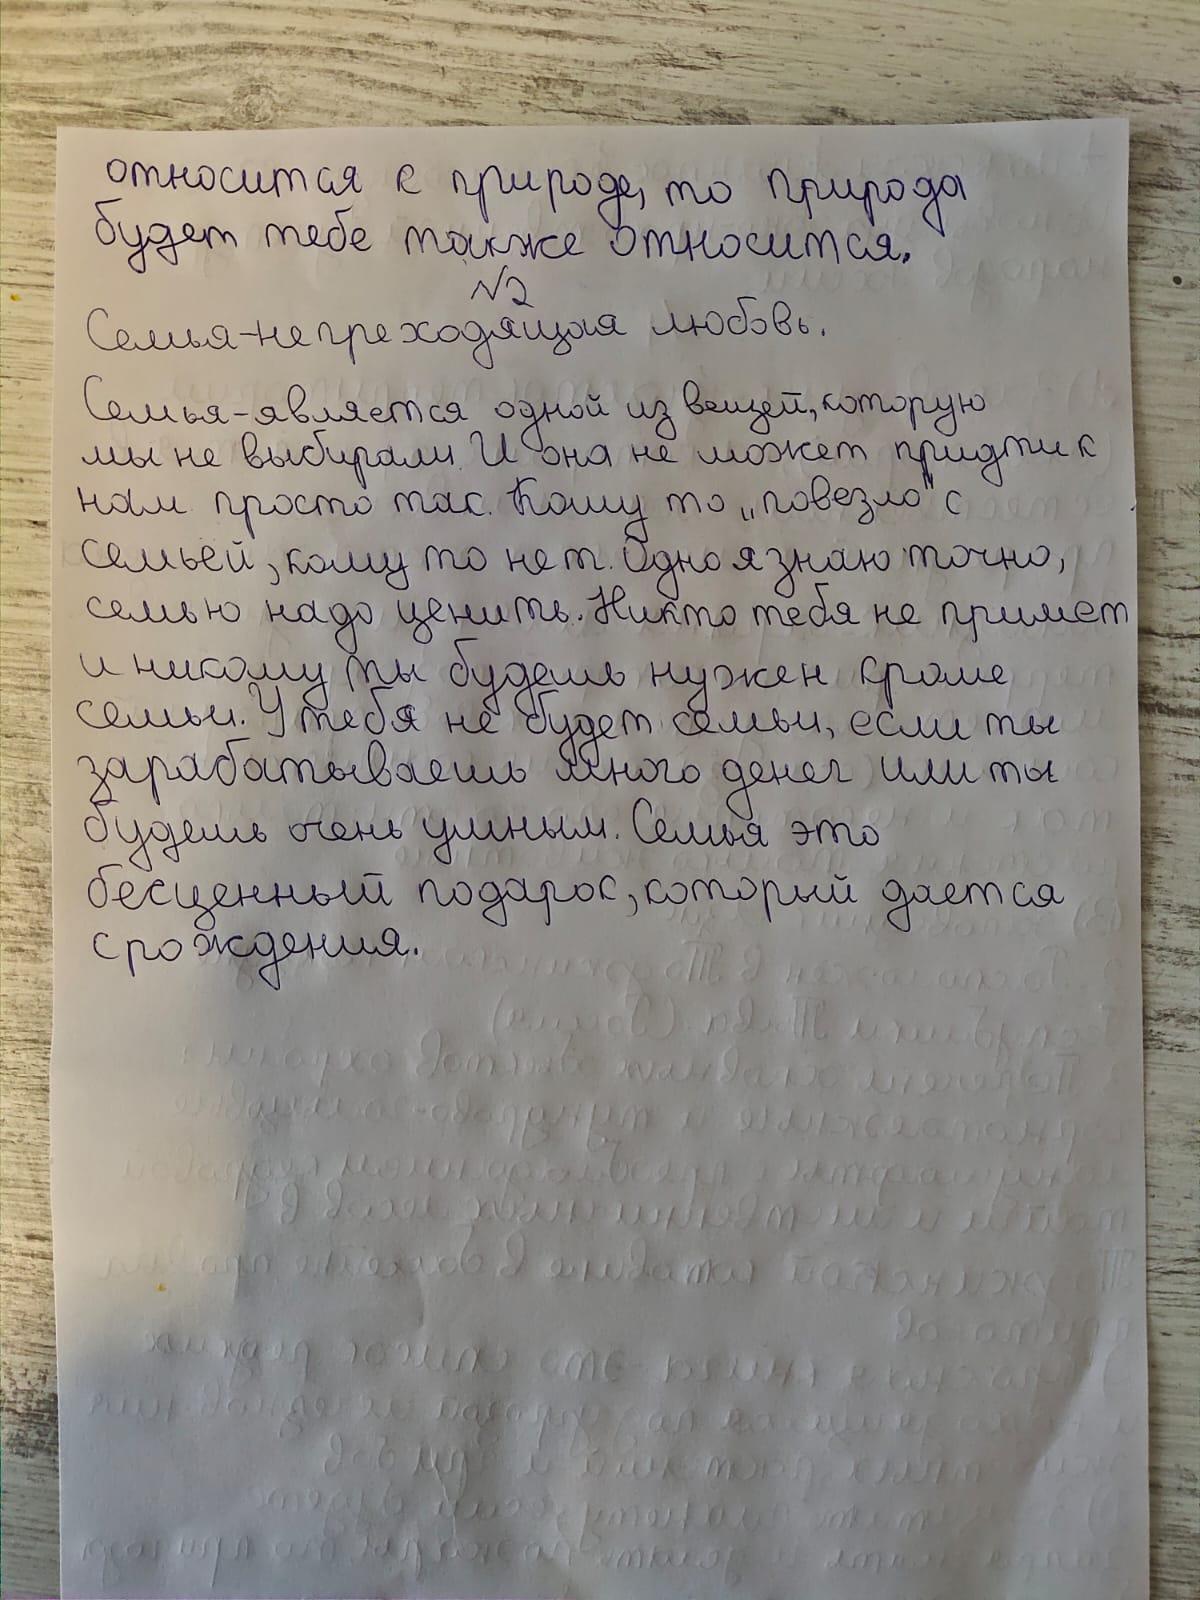 относится к природе, то природа
будет тебе также относится.
№2
Семья-непреходящая любовь.
Семья-является одной из вещей, которую
мы не выбирали. И она не может придти к
нам просто так. Кому то „повезло" с
семьей, кому то нет. Одно я знаю точно,
семью надо ценить. Никто тебя не примет
и никому ты будешь нужен кроме
семьи. У тебя не будет семьи, если ты
зарабатываешь много денег или ты
будешь очень умным. Семья это
бесценный подарок, который дается
с рождения.